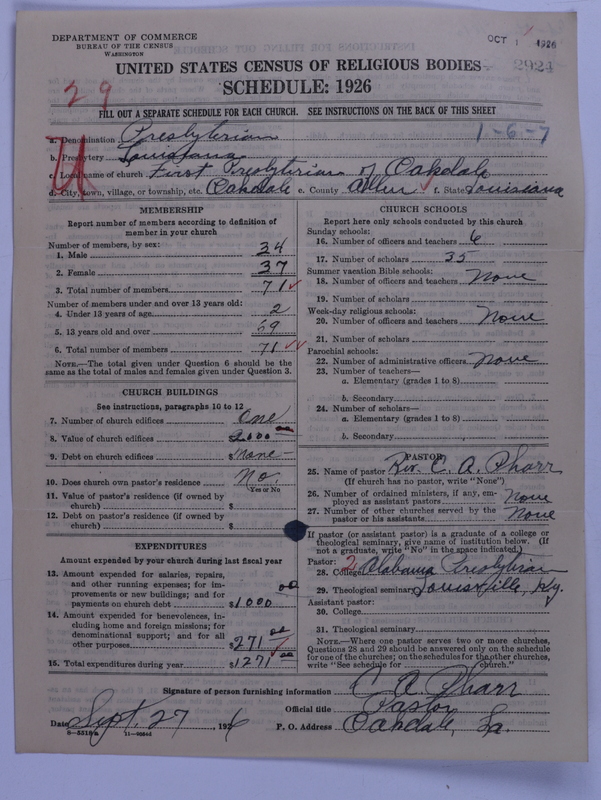 DEPARTMENT OF COMMERCE
BUREAU OF THE CENSUS
WASHINGTON
OCT 1 1926
2924
UNITED STATES CENSUS OF RELIGIOUS BODIES
SCHEDULE: 1926
29
FILL OUT A SEPARATE SCHEDULE FOR EACH CHURCH. SEE INSTRUCTIONS ON THE BACK OF THIS SHEET
a. Denomination Presbyterian 1-6-7
b. Presbytery Louisiana
c. Local name of church First Presbyterian of Oakdale
d. City, town, village, or township, etc. Oakdale e. County Allen f. State Louisiana
MEMBERSHIP
Report number of members according to definition of member in your church
Number of members, by sex:
1. Male 34
2. Female 37
3. Total number of members 71
Number of members under and over 13 years old:
4. Under 13 years of age 2
5. 13 years old and over 69
6. Total number of members 71
NOTE.—The total given under Question 6 should be the same as the total of males and females given under Question 3.
CHURCH BUILDINGS
See instructions, paragraphs 10 to 12
7. Number of church edifices One
8. Value of church edifices $2000.00
9. Debt on church edifices $None
10. Does church own pastor's residence No.
Yes or No
11. Value of pastor's residence (if owned by church) $
12. Debt on pastor's residence (if owned by church) $
EXPENDITURES
Amount expended by your church during last fiscal year
13. Amount expended for salaries, repairs, and other running expenses; for improvements or new buildings; and for payments on church debt $1000.00
14. Amount expended for benevolences, including home and foreign missions; for denominational support; and for all other purposes $271.00
15. Total expenditures during year $1271.00
CHURCH SCHOOLS
Report here only schools conducted by this church
Sunday schools:
16. Number of officers and teachers 6
17. Number of scholars 35
Summer vacation Bible schools:
18. Number of officers and teachers None
19. Number of scholars
Week-day religious schools:
20. Number of officers and teachers None
21. Number of scholars
Parochial schools:
22. Number of administrative officers None
23. Number of teachers—
a. Elementary (grades 1 to 8)
b. Secondary
24. Number of scholars—
a. Elementary (grades 1 to 8)
b. Secondary
PASTOR
25. Name of pastor Rev. C. A. Pharr
(If church has no pastor, write "None")
26. Number of ordained ministers, if any, employed as assistant pastors None
27. Number of other churches served by the pastor or his assistants None
If pastor (or assistant pastor) is a graduate of a college or theological seminary, give name of institution below. (If not a graduate, write "No" in the space indicated.)
Pastor:
28. College 2 Alabama Presbyterian
29. Theological seminary Louisville, Ky.
Assistant pastor:
30. College
31. Theological seminary
NOTE.—Where one pastor serves two or more churches, Questions 28 and 29 should be answered only on the schedule for one of the churches; on the schedules for the other churches, write "See schedule for church."
Signature of person furnishing information C A Pharr
Official title Pastor
Date Sept. 27, 1926 P. O. Address Oakdale, La.